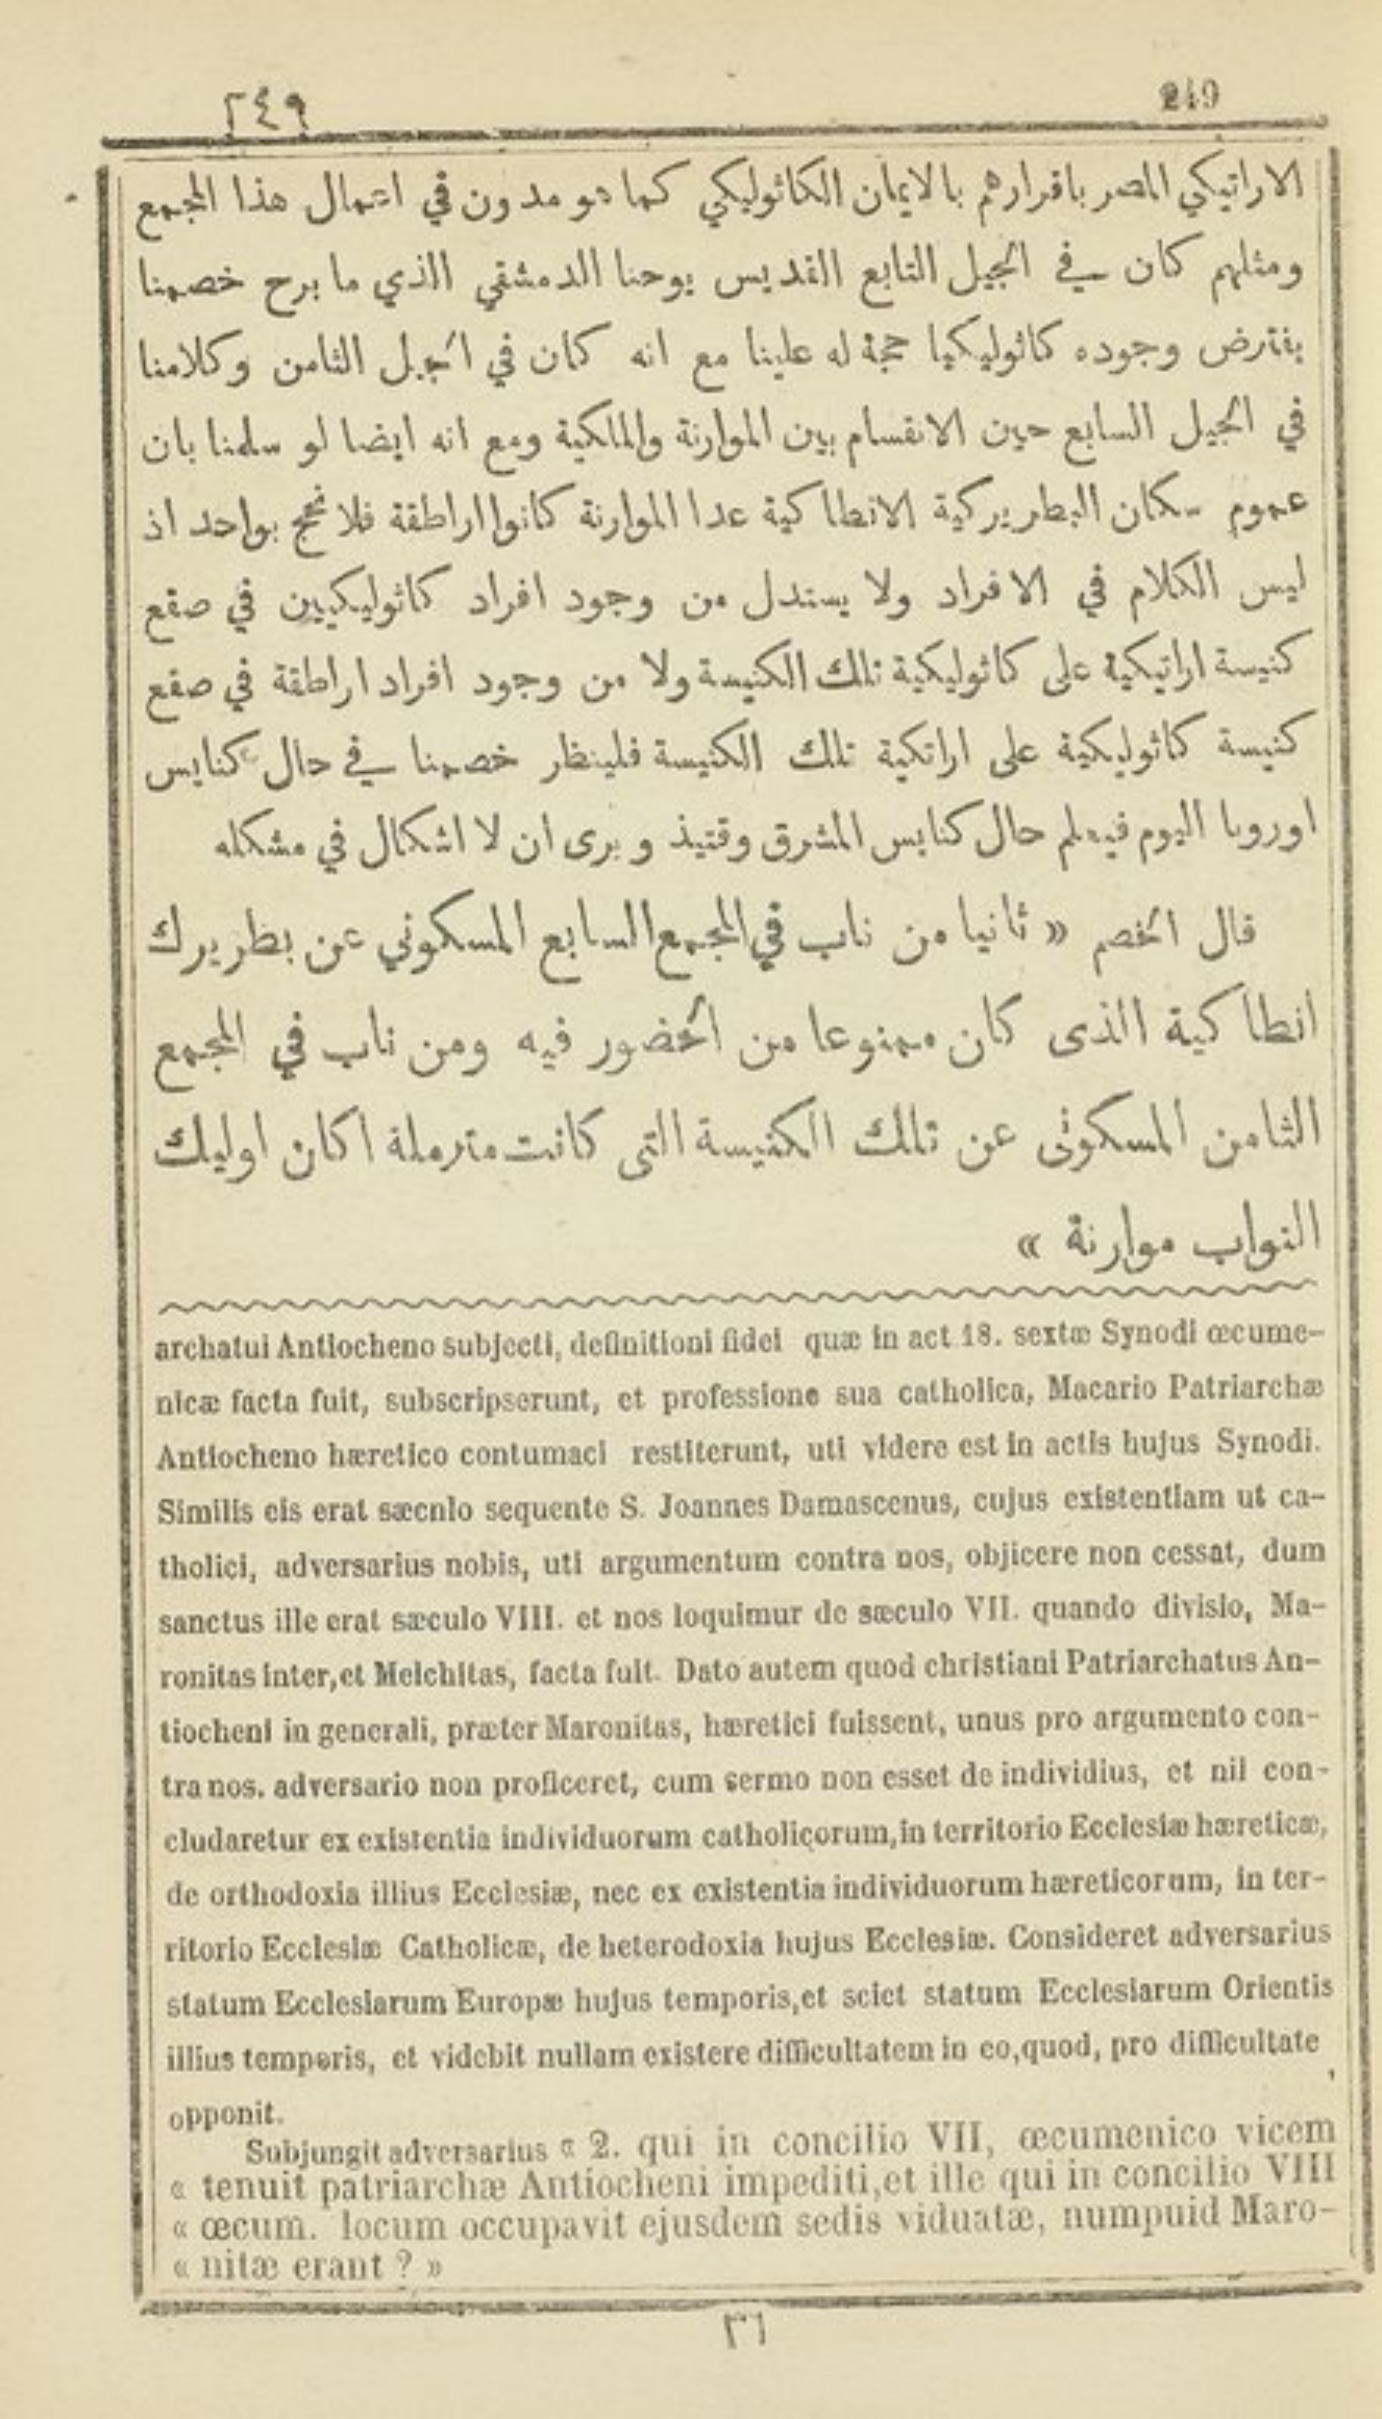 ٢٤٩
249
الاراتيكي المصر باقرارهم بالايمان الكاثوليكي كما هو مدون في اعمال هذا المجمع
ومثلهم كان في الجيل التابع القديس يوحنا الدمشقي الذي ما برح خصمنا
يفترض وجوده كاثوليكيا حجة له علينا مع انه كان في الجيل الثامن وكلامنا
في الجيل السابع حين الانقسام بين الموارنة والملكية ومع انه ايضا لو سلمنا بان
عموم سكان البطريركية الانطاكية عدا الموارنة كانوا اراطقة فلا نحج بواحد اذ
ليس الكلام في الافراد ولا يستدل من وجود افراد كاثوليكيين في صقع
كنيسة اراتيكية على كاثوليكية تلك الكنيسة ولا من وجود افراد اراطقة في صقع
كنيسة كاثوليكية على اراتكية تلك الكنيسة فلينظر خصمنا في حال كنايس
اوروبا اليوم فيعلم حال كنايس المشرق وقتيذ ويرى ان لا اشكال في مشكله
قال الخصم « ثانيا من ناب في المجمع السابع المسكوني عن بطريرك
انطاكية الذى كان ممنوعا من الحضور فيه ومن ناب في المجمع
الثامن المسكونى عن تلك الكنيسة التى كانت مترملة اكان اوليك
النواب موارنة »
archatui Antiocheno subjecti, definitioni fidei quæ in act 18. sextæ Synodi œcume-
nicæ facta fuit, subscripserunt, et professione sua catholica, Macario Patriarchæ
Antiocheno hæretico contumaci restiterunt, uti videre est in actis hujus Synodi.
Similis eis erat sæcnlo sequente S. Joannes Damascenus, cujus existentiam ut ca-
tholici, adversarius nobis, uti argumentum contra nos, objicere non cessat, dum
sanctus ille erat sæculo VIII. et nos loquimur de sæculo VII. quando divisio, Ma-
ronitas inter,et Melchitas, facta fuit. Dato autem quod christiani Patriarchatus An-
tiocheni in generali, præter Maronitas, hæretici fuissent, unus pro argumento con-
tra nos. adversario non proficeret, cum sermo non esset de individius, et nil con-
cludaretur ex existentia individuorum catholicorum,in territorio Ecclesiæ hæreticæ,
de orthodoxia illius Ecclesiæ, nec ex existentia individuorum hæreticorum, in ter-
ritorio Ecclesiæ Catholicæ, de heterodoxia hujus Ecclesiæ. Consideret adversarius
statum Ecclesiarum Europæ hujus temporis,et sciet statum Ecclesiarum Orientis
illius temporis, et videbit nullam existere difficultatem in eo,quod, pro difficultate
opponit.
Subjungit adversarius « 2. qui in concilio VII, œcumenico vicem
« tenuit patriarchæ Antiocheni impediti,et ille qui in concilio VIII
« œcum. locum occupavit ejusdem sedis viduatæ, numpuid Maro-
« nitæ erant ? »
٣٢